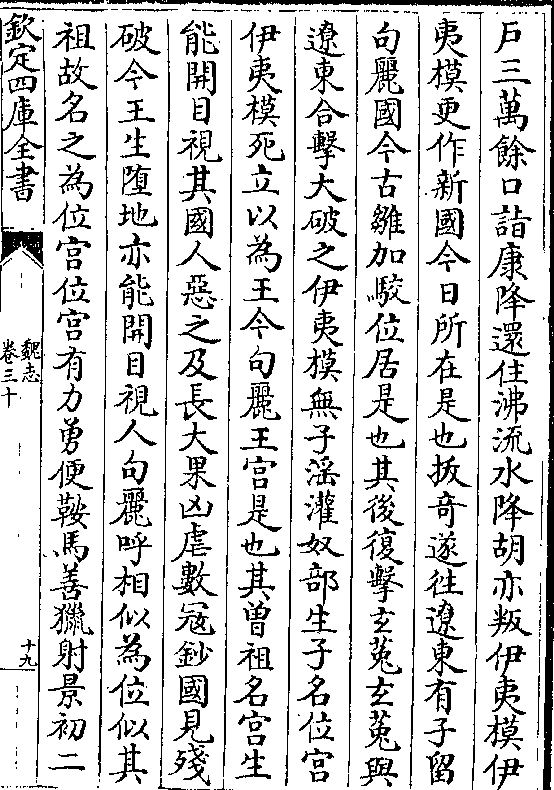 戶三萬餘口詣康降還住沸流水降胡亦叛伊夷模伊
夷模更作新國今日所在是也拔奇遂往遼東有子留
句麗國今古雛加駮位居是也其後復擊玄菟玄菟與
遼東合擊大破之伊夷模無子淫灌奴部生子名位宫
伊夷模死立以為王今句麗王宫是也其曾祖名宫生
能開目視其國人惡之及長大果凶虐數冦鈔國見殘
破今王生墮地亦能開目視人句麗呼相似為位似其
祖故名之為位宫位宫有力勇便鞍馬善獵射景初二
欽定四庫全書
魏志
卷三十
十九